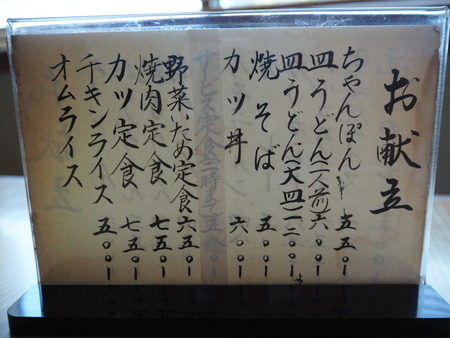 お献立
ちゃんぽん 五五〇ー
皿うどん(一人前) 六〇〇ー
皿うどん(大皿) 一二〇〇ーより
焼そば 五〇〇ー
カツ丼 六〇〇ー
サービス定食
野菜いため定食 六五〇ー
焼肉定食 七五〇ー
カツ定食 七五〇ー
チキンライス 五〇〇ー
オムライス